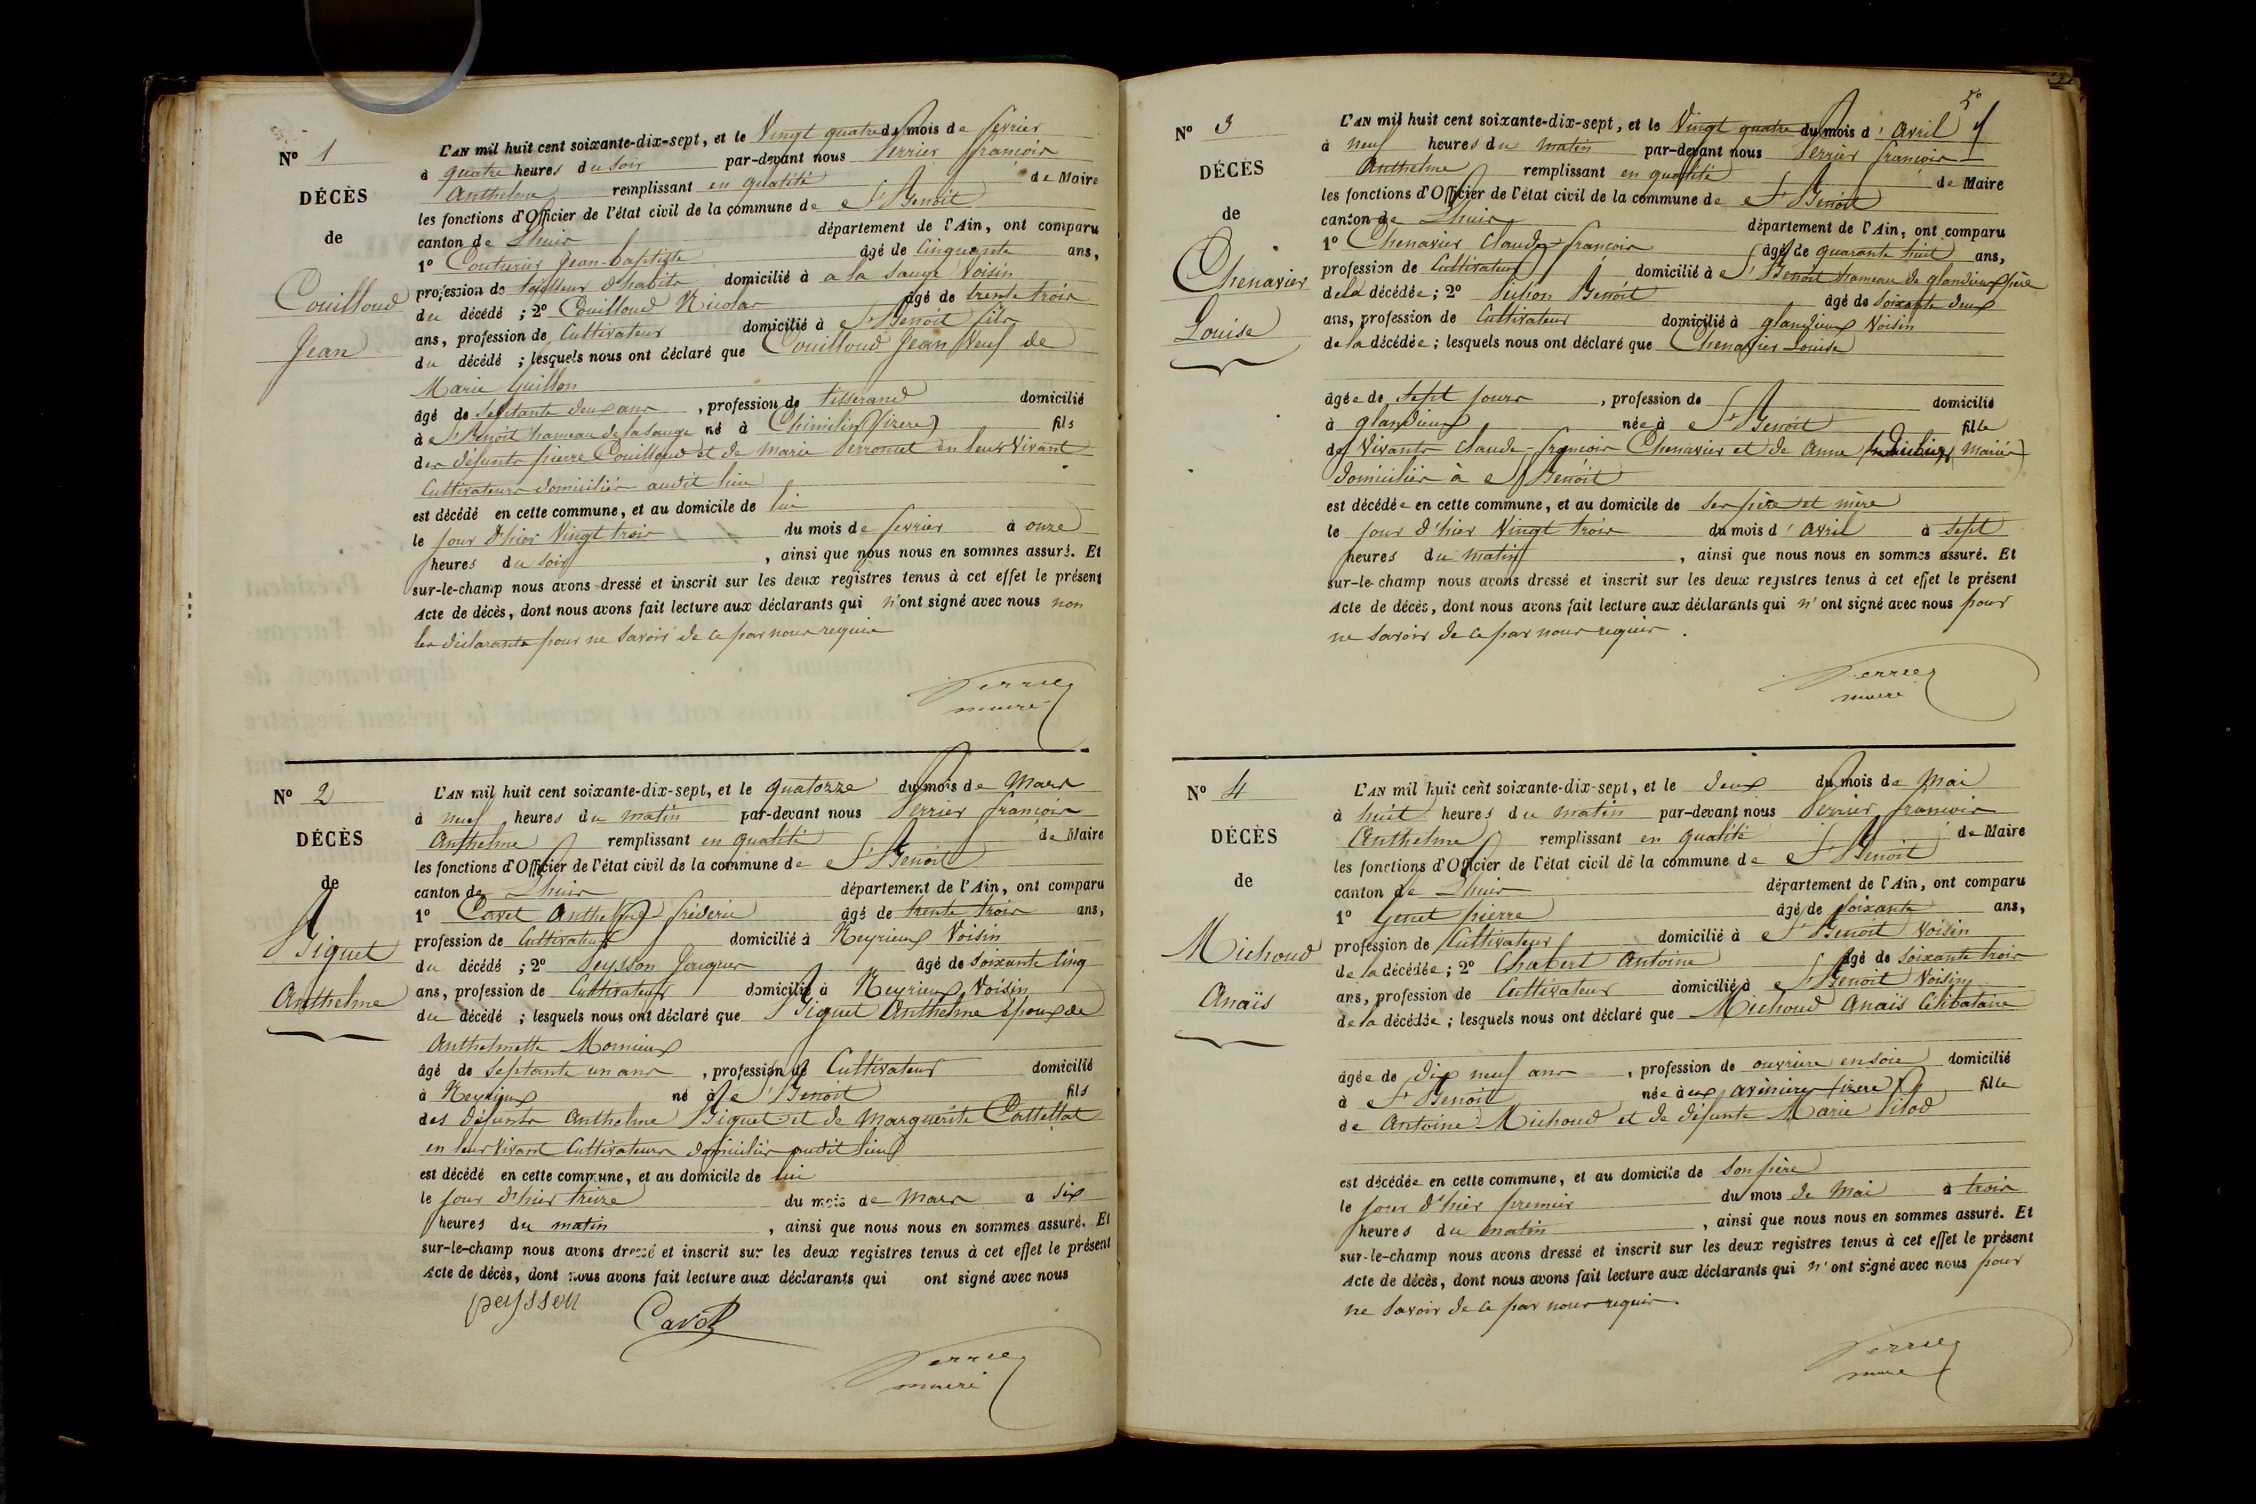 Nº 1
DÉCÈS
de
Couilloud
Jean
L'AN mil huit cent soixante-dix-sept, et le Vingt quatre du mois de fevrier
à quatre heures du soir par-devant nous Perrier françois
Anthelme remplissant en qualité de Maire
les fonctions d'Officier de l'état civil de la commune de St Benoit
canton de Lhuis département de l'Ain, ont comparu
1º Couturier Jean-baptiste âgé de Cinquante ans,
profession de tailleur d'habits domicilié à a la Sauge Voisin
du décédé ; 2º Couilloud Nicolas âgé de trente trois
ans, profession de Cultivateur domicilié à St Benoit fils
du décédé ; lesquels nous ont déclaré que Couilloud Jean Veuf de
Marie Guillon
âgé de Septante deux ans , profession de tisserand domicilié
à St Benoit hameau de la Sauge né à Chimilin (Izere) fils
des défunts pierre Couilloud et de Marie Perronet en leur Vivant
Cultivateurs domiciliés audit lieu
est décédé en cette commune, et au domicile de lui
le jour d'hier Vingt trois du mois de fevrier à onze
heures du soir , ainsi que nous nous en sommes assuré. Et
sur-le-champ nous avons dressé et inscrit sur les deux registres tenus à cet effet le présent
Acte de décès, dont nous avons fait lecture aux déclarants qui n'ont signé avec nous non
les déclarants pour ne savoir de ce par nous requis
Perrier
maire
Nº 2
DÉCÈS
de
Siguet
Anthelme
L'AN mil huit cent soixante-dix-sept, et le quatorze du mois de Mars
à neuf heures du matin par-devant nous Perrier françois
Anthelme remplissant en qualité de Maire
les fonctions d'Officier de l'état civil de la commune de St Benoit
canton de Lhuis département de l'Ain, ont comparu
1º Cavet Anthelme fréderic âgé de trente trois ans,
profession de Cultivateur domicilié à Neyrieux Voisin
du décédé ; 2º Peysson Jacques âgé de Soixante cinq
ans, profession de Cultivateur domicilié à Neyrieux Voisin
du décédé ; lesquels nous ont déclaré que Siguet Anthelme époux de
Anthelmette Mornieux
âgé de Septante un ans , profession de Cultivateur domicilié
à Neyrieux né à St Benoit fils
des défunts Anthelme Siguet et de Marguerite Cottettat
en leur Vivant Cultivateurs domiciliés audit lieu
est décédé en cette commune, et au domicile de lui
le jour d'hier treize du mois de Mars à Six
heures du matin , ainsi que nous nous en sommes assuré. Et
sur-le-champ nous avons dressé et inscrit sur les deux registres tenus à cet effet le présent
Acte de décès, dont nous avons fait lecture aux déclarants qui ont signé avec nous
peysson Cavet
Perrier
maire
5º
Nº 3
DÉCÈS
de
Chenavier
Louise
L'AN mil huit cent soixante-dix-sept, et le Vingt quatre du mois d'Avril
à neuf heures du matin par-devant nous Perrier françois
Anthelme remplissant en qualité de Maire
les fonctions d'Officier de l'état civil de la commune de St Benoit
canton de Lhuis département de l'Ain, ont comparu
1º Chenavier Claude-françois âgé de quarante huit ans,
profession de Cultivateur domicilié à St Benoit hameau de glandieux père
de la décédée ; 2º Pichon Benoit âgé de Soixante deux
ans, profession de Cultivateur domicilié à glandieux Voisin
de la décédée ; lesquels nous ont déclaré que Chenavier Louise
âgée de sept jours , profession de domicilié
à glandieux née à St Benoit fille
des Vivants Claude-françois Chenavier et de Anne mariés
domiciliés à St Benoit
est décédée en cette commune, et au domicile de ses père et mère
le jour d'hier Vingt trois du mois d'Avril à sept
heures du matin , ainsi que nous nous en sommes assuré. Et
sur-le-champ nous avons dressé et inscrit sur les deux registres tenus à cet effet le présent
Acte de décès, dont nous avons fait lecture aux déclarants qui n'ont signé avec nous pour
ne savoir de ce par nous requis.
Perrier
maire
Nº 4
DÉCÈS
de
Michoud
Anaïs
L'AN mil huit cent soixante-dix-sept, et le deux du mois de Mai
à huit heures du matin par-devant nous Perrier françois
Anthelme remplissant en qualité de Maire
les fonctions d'Officier de l'état civil de la commune de St Benoit
canton de Lhuis département de l'Ain, ont comparu
1º Genet pierre âgé de soixante ans,
profession de Cultivateur domicilié à St Benoit Voisin
de la décédée ; 2º Chabert Antoine âgé de soixante trois
ans, profession de Cultivateur domicilié à St Benoit Voisin
de la décédée ; lesquels nous ont déclaré que Michoud Anaïs Célibataire
âgée de dix neuf ans , profession de ouvrière en soie domicilié
à St Benoit née à aux avenières (izere) fille
de Antoine Michoud et de défunte Marie Pitod
est décédée en cette commune, et au domicile de Son père
le jour d'hier premier du mois de Mai à trois
heures du matin , ainsi que nous nous en sommes assuré. Et
sur-le-champ nous avons dressé et inscrit sur les deux registres tenus à cet effet le présent
Acte de décès, dont nous avons fait lecture aux déclarants qui n'ont signé avec nous pour
ne savoir de ce par nous requis.
Perrier
maire